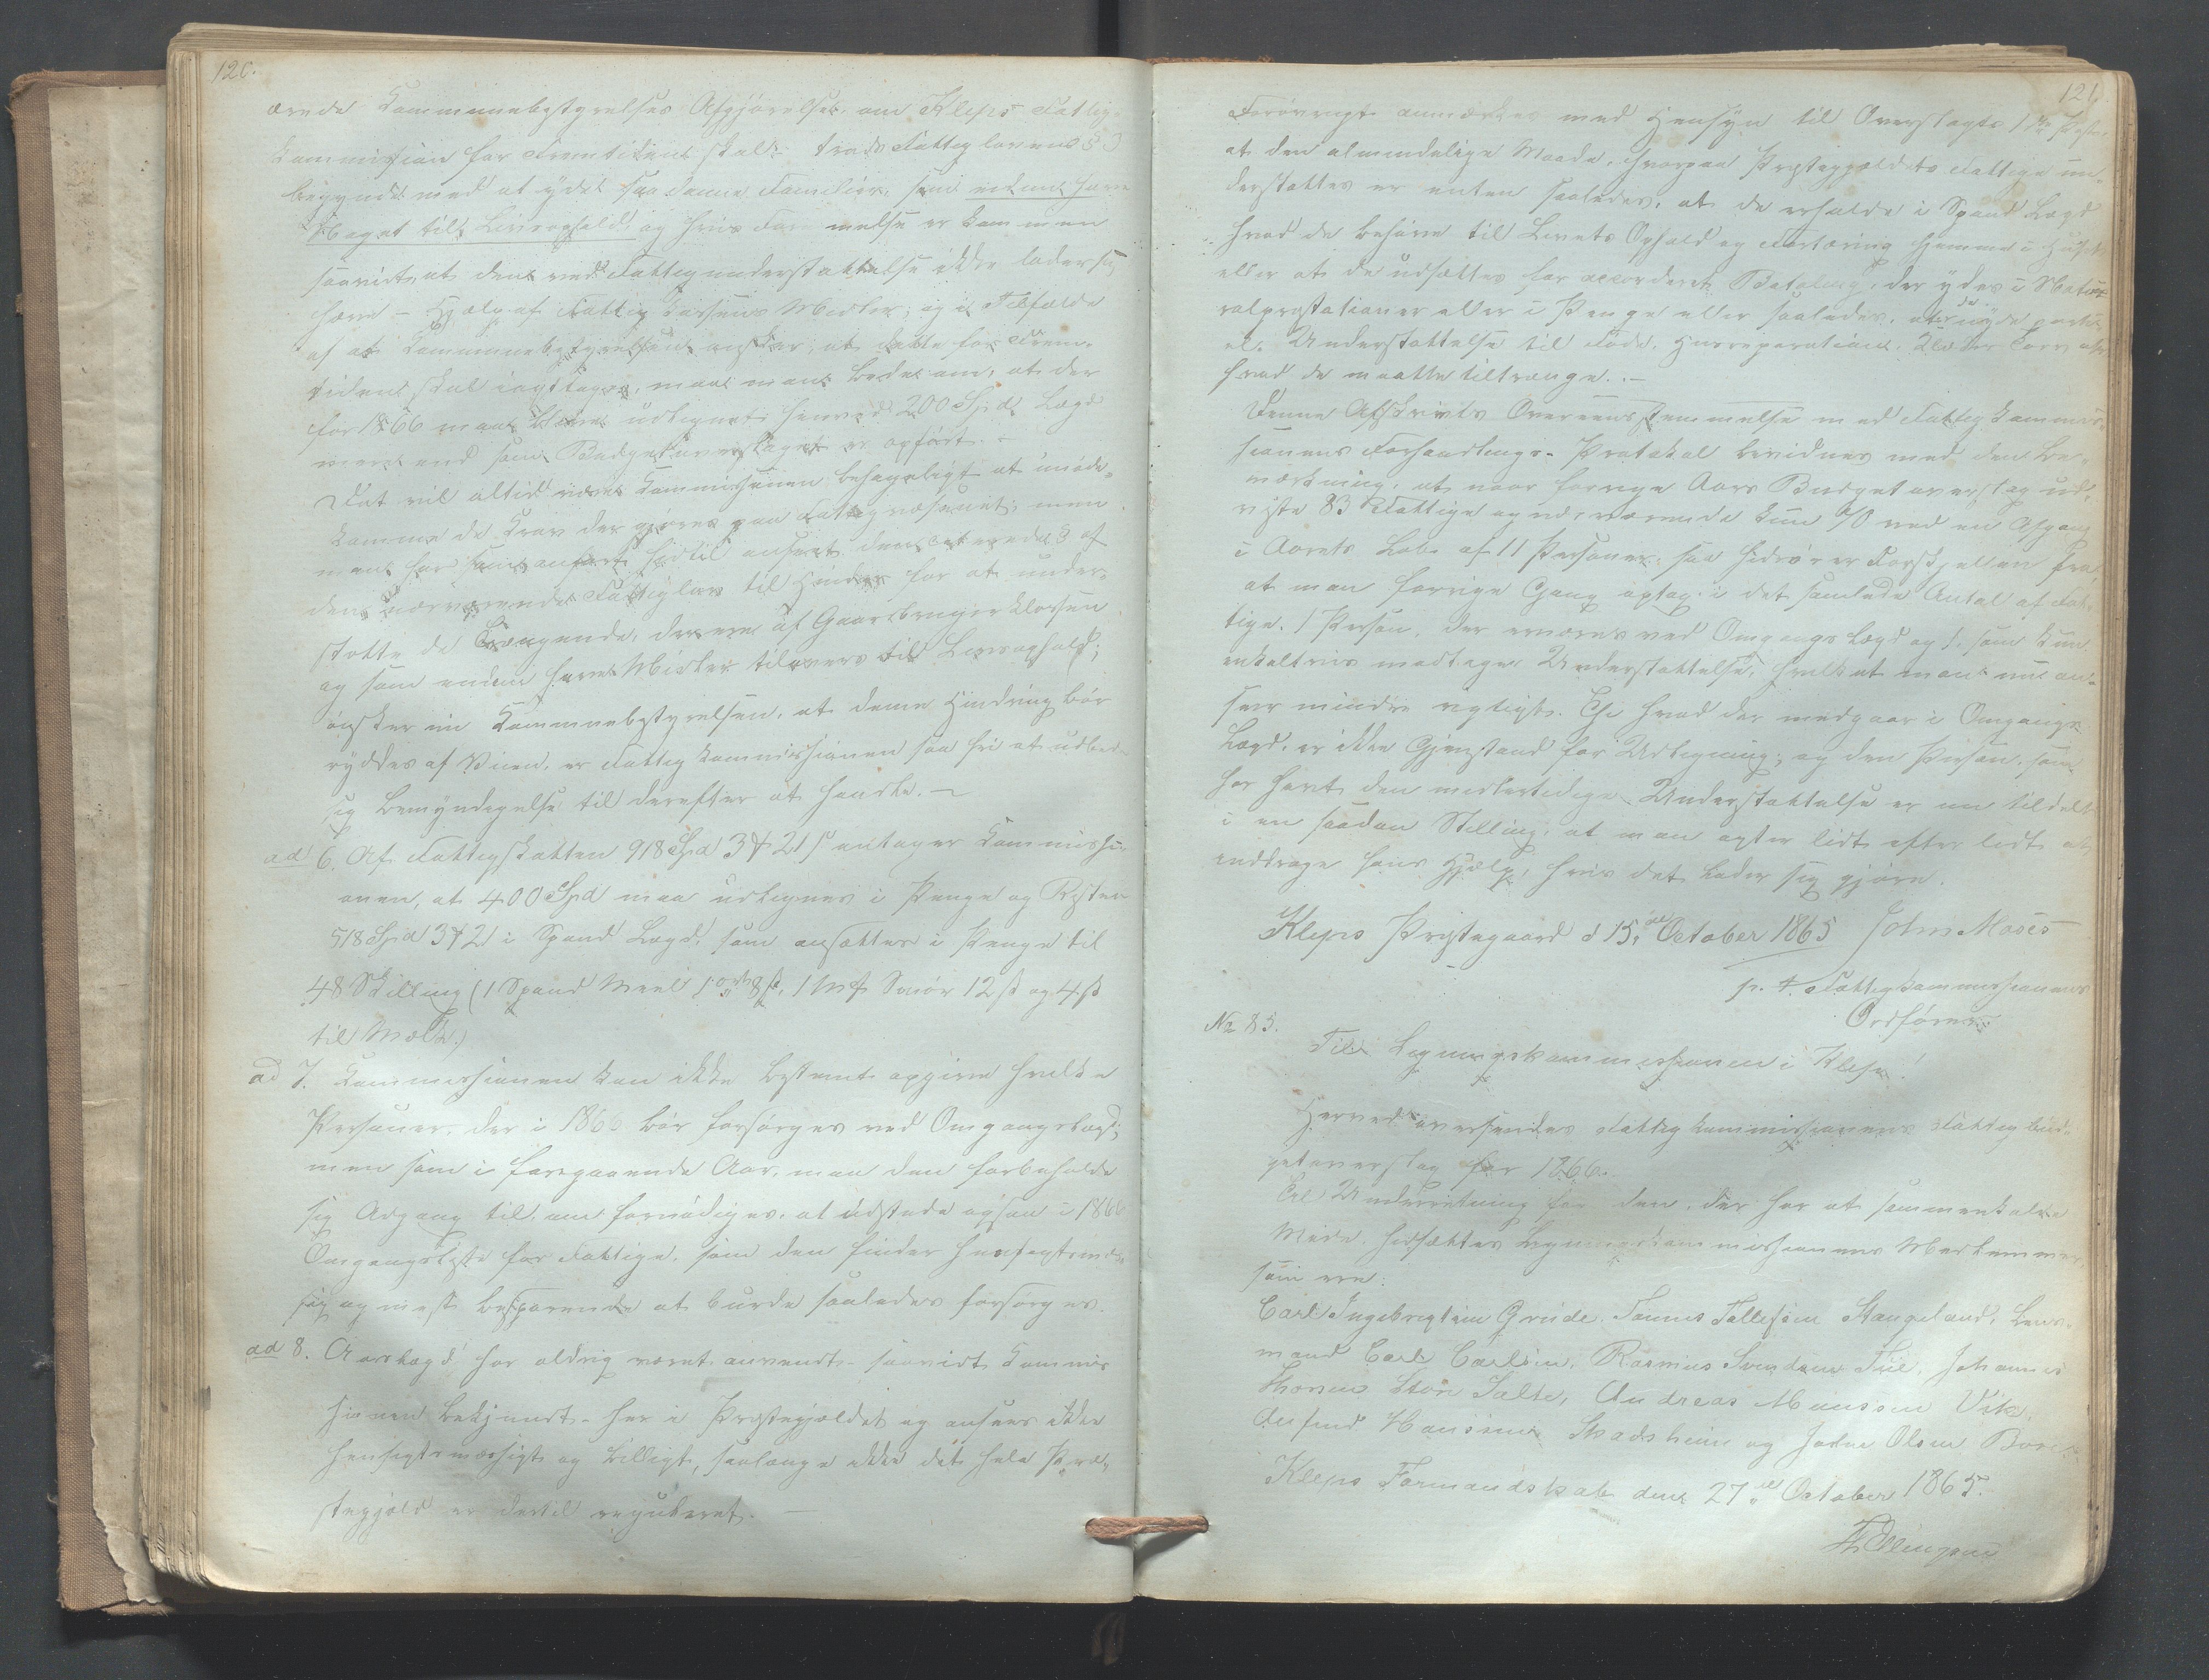 120.
ærede Kommunebestyrelses Afgjørelse, om Kleps Fattig-
kommission for Fremtiden skal trods Fattiglovens § 3
begynde med at yde saadanne Familier, som endnu have
Noget til Livsophold, og hvis Fornuelse er kommen
saavidt, at den ved Fattigunderstøttelse ikke lader sig
hæve – Hjælp af Fattigkassens Midler; og i Tilfælde
af at Kommunebestyrelsen ønsker, at dette for Frem-
tiden skal iagttages, maa man bede om, at der
for 1866 maa blive udlignet henved 200 Spd Lægd
mere end som Budgetoverslaget er opført. –
Det vil altid være Kommissionen behageligt at imøde-
komme de Krav der gjøres paa Fattigvæsenet; men
man har som anført hidtil anseet den citerede § af
den nærværende Fattiglov til Hinder for at under-
støtte de Trængende, der ere af Gaardbrugerklassen
og som endnu have Midler tilovers til Livsophold;
ønsker nu Kommunebestyrelsen, at denne Hindring bør
ryddes af Veien, er Fattigkommissionen saa fri at udbede
sig Bemyndigelse til derefter at handle. –
ad 6. Af Fattigskatten 918 Spd 3 # 21 s antager Kommissi-
onen, at 400 Spd maa udlignes i Penge og Resten
518 Spd 3 # 21 i Spand Lægd, som ansættes i Penge til
48 Skilling (1 Spand Meel 1 ort 8 s, 1 Mk Smør 12 s og 4 s
til Mælk.)
ad 7. Kommissionen kan ikke bestemt opgive hvilke
Personer, der i 1866 bør forsørges ved Omgangslægd;
men som i foregaaende Aar, maa den forbeholde
sig Adgang til, om fornødiges, at udstede ogsaa i 1866
Omgangsliste for Fattige, som den finder hensigtsmæs-
sig og mest besparende at burde saaledes forsørges.
ad 8. Aarslægd har aldrig været anvendt – saavidt Kommis-
sionen bekjendt – her i Præstegjældet og ansees ikke
hensigtsmæssigt og billigt, saalænge ikke det hele Præ-
stegjæld er dertil reguleret. –
121
Forøvrigt anmærkes med Hensyn til Overslagets 1ste Post,
at den almindelige Maade, hvorpaa Præstegjældets Fattige un-
derstøttes er enten saaledes, at de erholde i Spand Lægd
hvad de behøve til Livets Ophold og Fortæring hjemme i Huset
eller at de udsættes for accorderet Betaling, der ydes i Natu-
ralprestationer eller i Penge eller saaledes, at de nyde parti-
el Understøttelse til Føde, Husreparation, Klæder Torv eller
hvad de maatte tiltrænge. –
Denne Afskrivts Overeensstemmelse med Fattigkommis-
sionens Forhandlings-Protokol bevidnes med den Be-
mærkning, at naar forrige Aars Budgetoverslag ud-
viste 83 Fattige og nærværende kun 70 ved en Afgang
i Aarets Løb af 11 Personer, saa hidrører Forskjellen fra,
at man forrige Gang optog i det samlede Antal af Fat-
tige, 1 Person, der ernæres ved Omgangs Lægd og 1, som kun
enkeltvis modtager Understøttelse, hvilket man nu an-
seer mindre rigtigt. Thi hvad der medgaar i Omgangs-
Lægd, er ikke Gjenstand for Udligning; og den Person, som
har havt den midlertidige Understøttelse er nu tildelt
i en saadan Stilling, at man agter lidt efter lidt at
inddrage hans Hjælp, hvis det lader sig gjøre.
Kleps Præstegaard d 15de October 1865 John Moses
p. t. Fattigkommissionens
Ordfører
No 85.
Til Ligningskommissionen i Klep!
Herved oversendes Fattigkommissionens Fattigbud-
getoverslag for 1866.
Til Underretning for den, der har at sammenkalde
Møde, hidsættes Ligningskommissionens Medlemmer,
som ere:
Carl Ingebregtsen Grude, Tønnes Tollefsen Stangeland, Lens-
mand Carl Carlsen, Rasmus Svendsen Tiie, Johannes
Thorsen Store Salte, Andreas Monssen Vik,
Aufind Hansen Skadsheim og Jadne Olsen Bore.
Kleps Formandskab den 27de October 1865.
Th Ellingsen